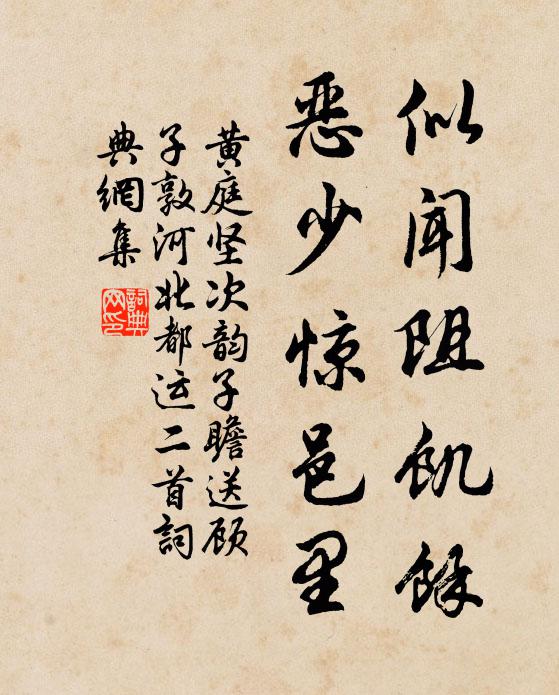 似闻阻饥馀
恶少惊邑里
黄庭坚次韵子瞻送顾
子敦河北都运二首詞
典網集
詞典网印